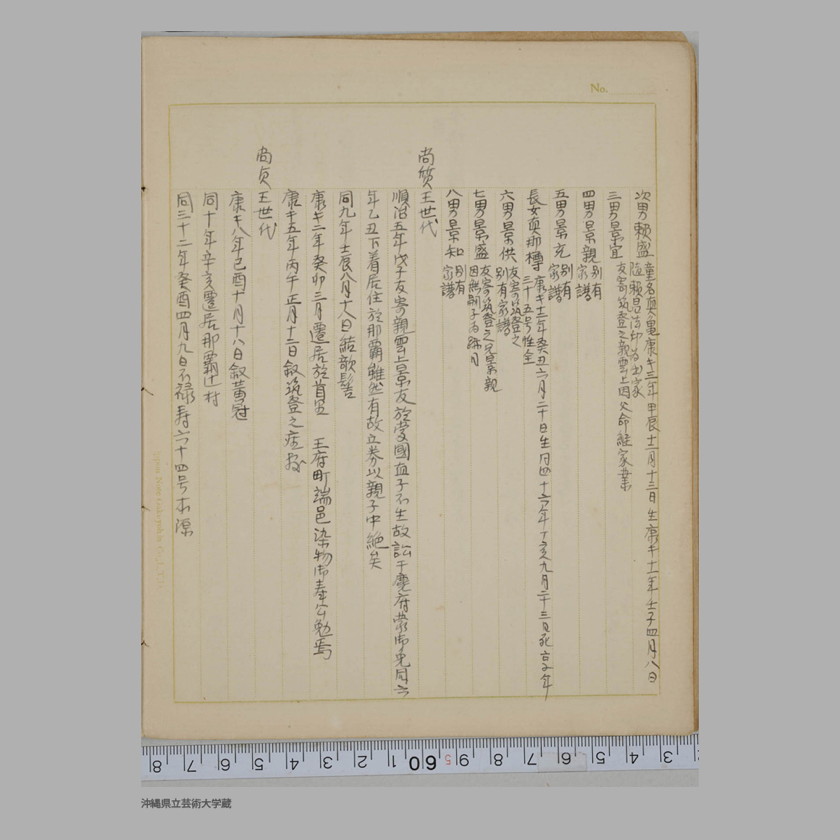 No.
次男頼盛 童名真五亀康キ三年甲辰十二月十三日生康キ十一年壬子四月八日
陞頼昌法印為出家
三男景宜 友寄筑登之親雲上因父命継家業
四男景親 別有家譜
五男景充 別有家譜
長女真那樽 康キ十二年癸丑六月二十日生同四十六年丁亥九月二十三日死享年
三十五号性全
六男景供 友寄筑登之別有家譜
七男景盛 友寄筑登之兄景親因無嗣子為跡目
八男景知 別有家譜
尚質王世代
順治五年戊子友寄親雲上景友於愛國血子不生故訟于麑府蒙御免同六
年乙丑下着居住於那覇雖然有故立券以親子中絶矣
同九年壬辰八月十八日結歌髻
康キ二年癸卯三月遷居於首里 王府町端邑染物御奉公勤焉
康キ五年丙午正月十二日叙筑登之座敷
尚貞王世代
康キ八年己酉十月十八日叙黄冠
同十年辛亥遷居那覇辻村
同三十二年癸酉四月九日不禄寿六十四号本源
8 7 6 5 4 3 2 1 60 9 5 8 7 6 5 4 3
沖縄県立芸術大学蔵